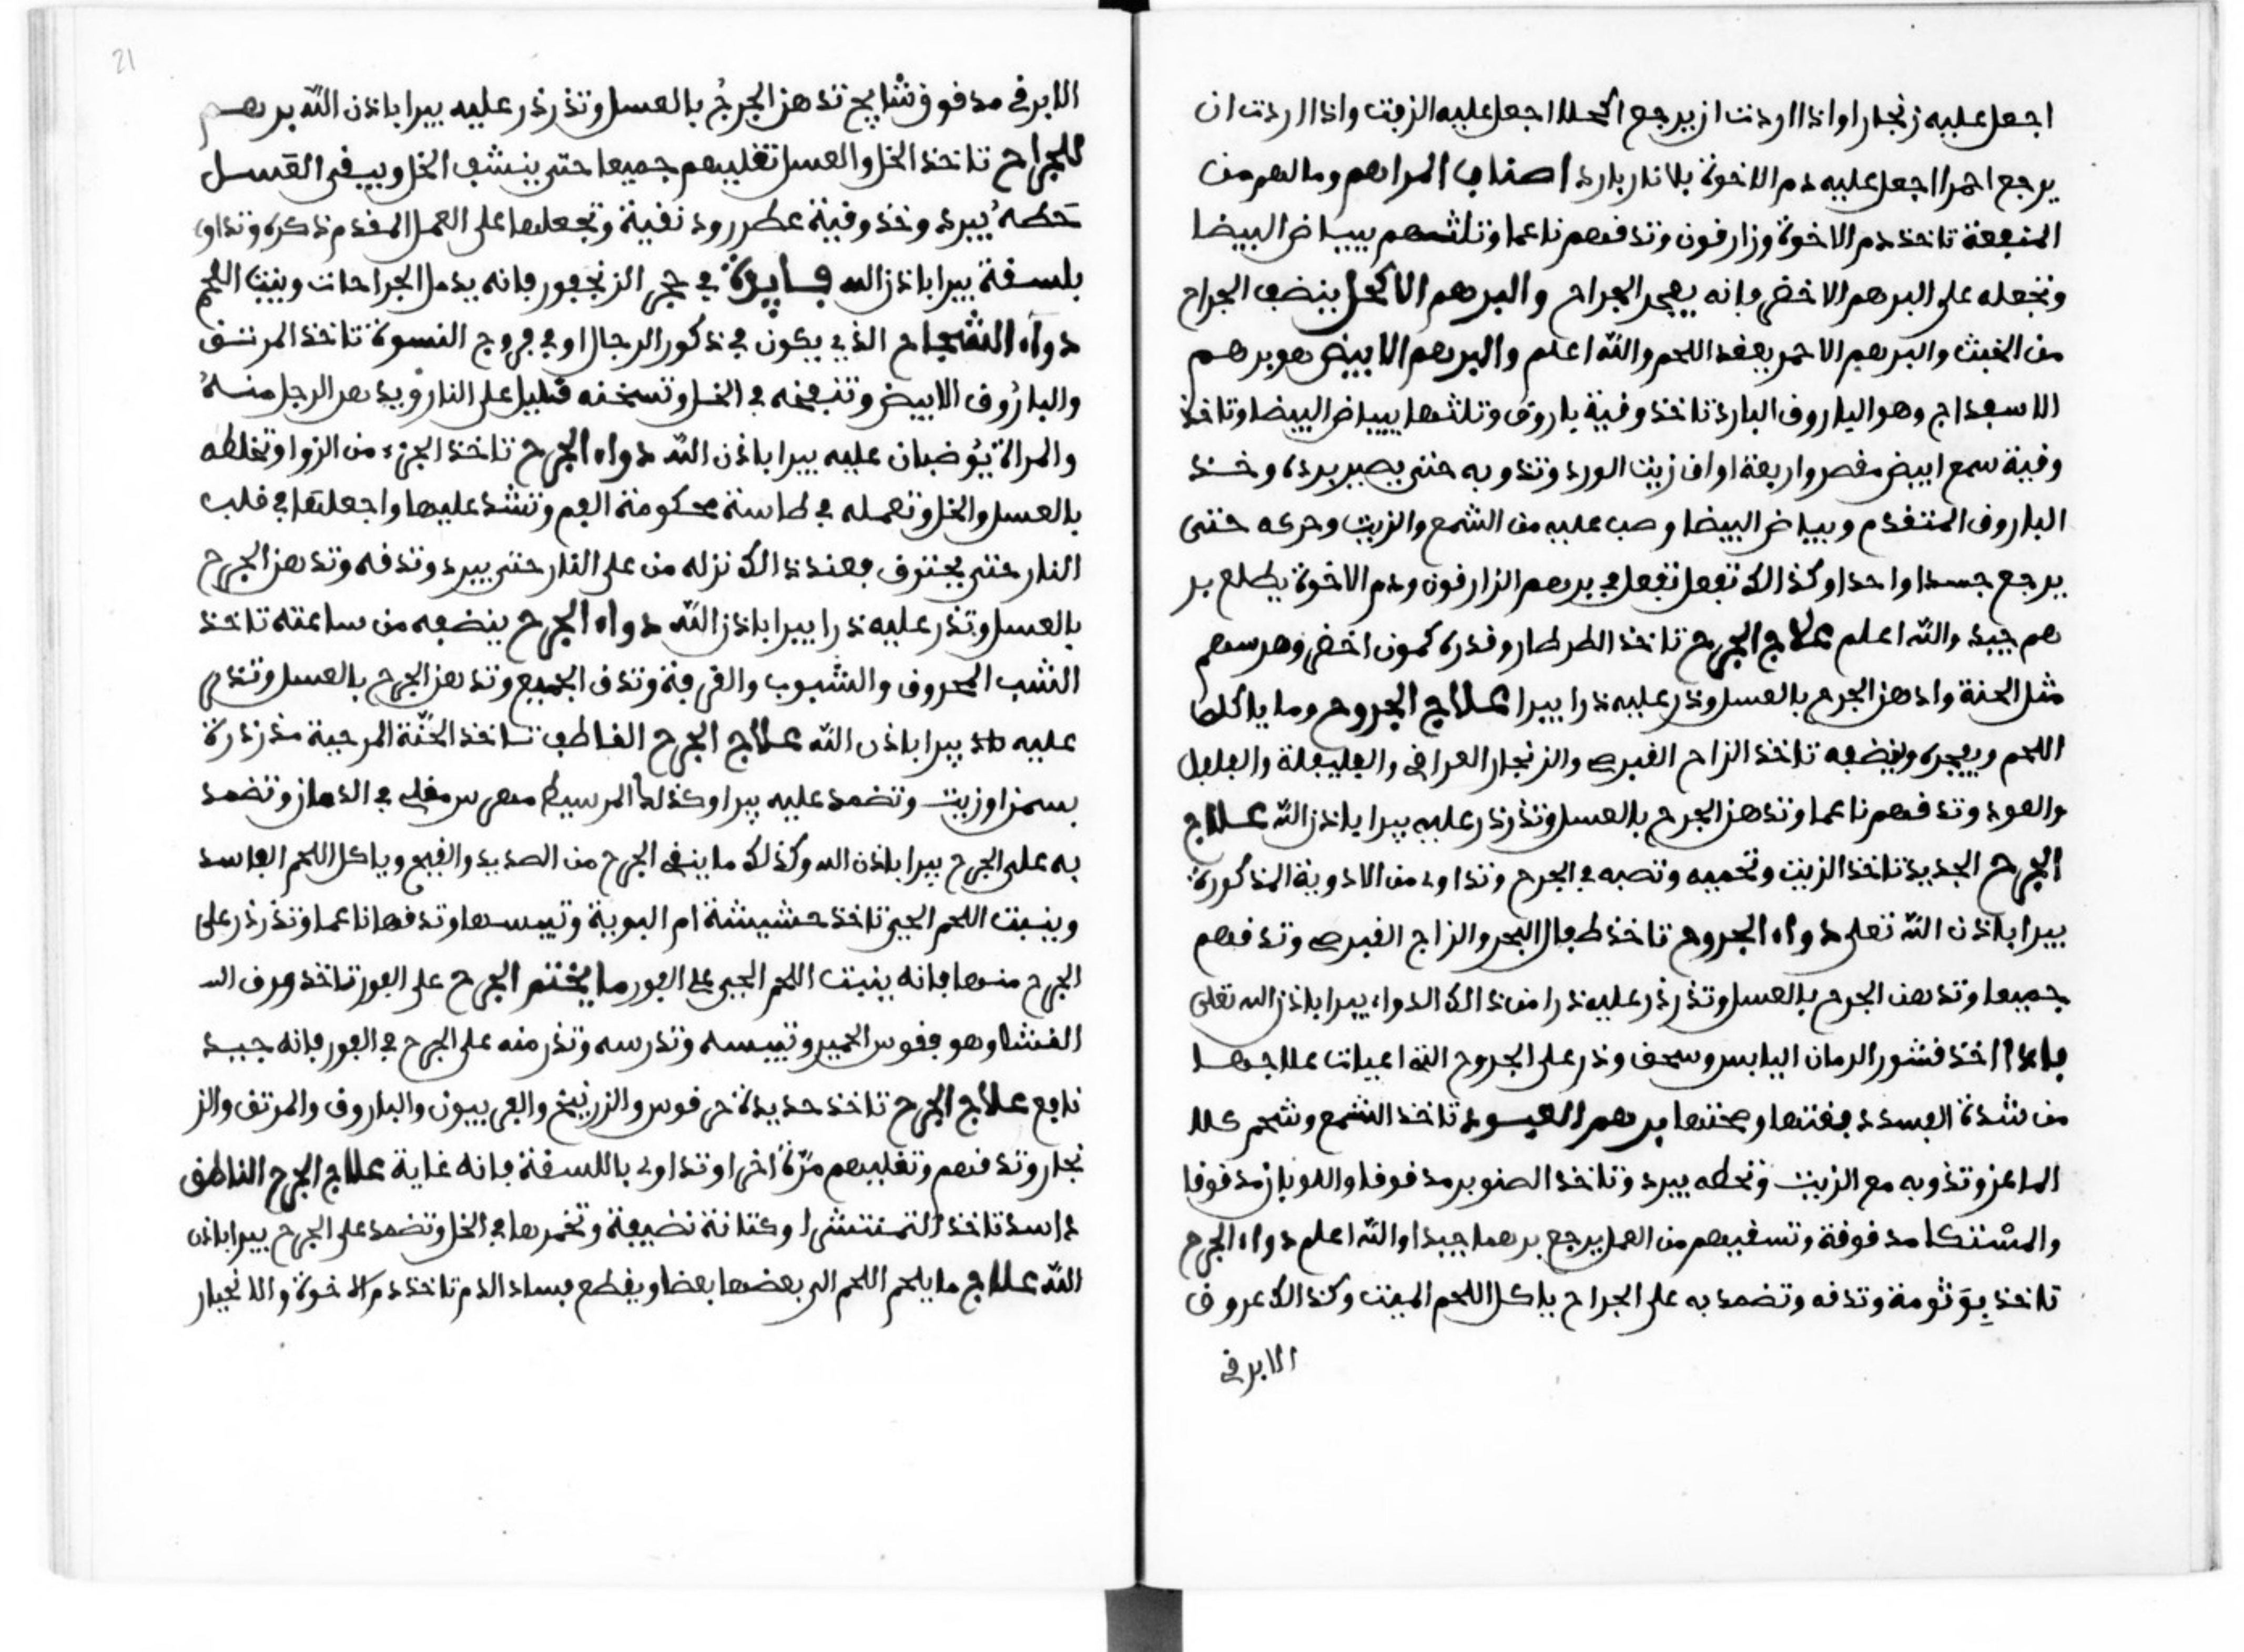 اجعل عليه زنجارا واذا اردت ان يرجع اكحلا اجعل عليه الزفت واذا اردت ان
يرجع احمرا اجعل عليه دم الاخوة بلا نار بارد اصناب المراهم وما لهم من
المنفعة تاخذ دم الاخوة وزارقون وتدقهم ناعما وتلثهم ببياض البيضا
وتجعله على البرهم الاخضر فانه يفجر الجراح والبرهم الاكحل ينضف الجراح
من الخبث والبرهم الاحمر يعقد اللحم والله اعلم والبرهم الابيض هو برهم
الاسفداج وهو الباروق البارد تاخذ وقية باروق وتلثها ببياض البيضا وتاخذ
وقية سمع ابيض مقصر واربعة اواق زيت الورد وتذوبه حتى يصير برده وخذ
الباروق المتقدم وبياض البيضا وصب عليه من الشمع والزيت وحركه حتى
يرجع جسدا واحدا وكذالك تفعل تفعل في برهم الزارقون ودم الاخوة يطلع بر
هم جيد والله اعلم علاج الجرح تاخذ الطرطار وقدره كمون اخضر وهرسهم
مثل الحنة وادهن الجرح بالعسل وذر عليه ذرا يبرا علاج الجروح وما ياكلها
اللحم ويفجره وينضفه تاخذ الزاج القبرصي والزنجار العراقي والفليفلة والفلفل
والعود وتدقهم ناعما وتدهن الجرح بالعسل وتذرذر عليه يبرا باذن الله علاج
الجرح الجديد تاخذ الزيت وتحميه وتصبه في الجرح وتداوي من الادوية المذكورة
يبرا باذن الله تعلى دواء الجروح تاخذ طفال البحر والزاج القبرصي وتدقهم
جميعا وتدهن الجرح بالعسل وتذرذر عليه ذرا من ذالك الدواء يبرا باذن الله تعلى
فايدا اخذ قشور الرمان اليابس وسحق وذر على الجروح التي اعيات علاجها
من شدة الفسدد فغتها وصحتها برهم الفسود تاخذ الشمع وشحم كلا
الماعز وتذوبه مع الزيت وتحطه يبرد وتاخذ الصنوبر مدقوقا واللوبان مدقوقا
والمشتكا مدقوقة وتسقيهم من العمل يرجع برهما جيدا والله اعلم دواء الجرح
تاخذ بوثومة وتدقه وتضمد به على الجراح ياكل اللحم الميت وكذالك عروق
الابرفي
21
الابرفي مدقوق شايح تدهن الجرح بالعسل وتذرذر عليه يبرا باذن الله برهم
للجراح تاخذ الخل والعسل تغليهم جميعا حتى ينشف الخل ويبقى العسل
حطه يبرد وخذ وقية عطررود نقية وتجعلها على العمل المقدم ذكره وتداوي
بلسقة يبرا باذن الله فايدة في حجر الزنجفور فانه يدمل الجراحات وينبت اللحم
دواء الشجاح الذي يكون في ذكور الرجال او في فروج النسوة تاخذ المرتق
والباروق الابيض وتنفخه في الخل وتسخنه قليل على النار ويدهن الرجل منه
والمراة يوضبان عليه يبرا باذن الله دواء الجرح تاخذ الجزء من الزوا وتخلطه
بالعسل والخل وتعمله في طاسة محكومة الفم وتشد عليها واجعلها في قلب
النار حتى يحترق فعند ذالك نزله من على النار حتى يبرد وتدقه وتدهن الجرح
بالعسل وتذر عليه ذرا يبرا باذن الله دواء الجرح ينضفه من ساعته تاخذ
الشب المحروق والشبوب والقرفة وتدق الجميع وتدهن الجرح بالعسل وتذر
عليه يبرا باذن الله علاج الجرح القاطف تاخذ الحنة المرحية مذرذرة
بسمن او زيت وتضمد عليه يبرا وكذلك المرسيط مهرس مقلي في الدهان وتضمد
به على الجرح يبرا باذن الله وكذلك ما ينقي الجرح من الصديد والقيح وياكل اللحم الفاسد
وينبت اللحم الحي تاخذ حشيشة ام البوية وتيبسها وتدقها ناعما وتذرذر على
الجرح منها فانه ينبت اللحم الحي على الفور ما يختم الجرح على الفور تاخذ ورق الـ
القثا وهو فقوس الحمير وتيبسه وتدرسه وتذر منه على الجرح في الفور فانه جيد
نافع علاج الجرح تاخذ حديدة حرقوس والزرنيخ والفربيون والباروق والمرتق والز
نجار وتدقهم وتغليهم مرة اخرا وتداوي باللسقة فانه غاية علاج الجرح الناطق
داسد تاخذ التمتتشرا وكتانة نضيفة وتخمرها في الخل وتضمد على الجرح يبرا باذن
الله علاج ما يلحم اللحم الى بعضها بعضا ويقطع فساد الدم تاخذ دم الاخوة والانجبار